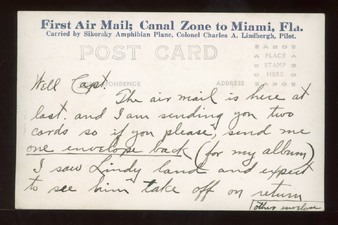 First Air Mail; Canal Zone to Miami, Fla.
Carried by Sikorsky Amphibian Plane, Colonel Charles A. Lindbergh, Pilot.
POST CARD
PLACE
STAMP
HERE
CORRESPONDENCE ADDRESS
Well Capt.
The air mail is here at
last. and I am sending you two
cards so if you please, send me
one envelope back (for my album)
I saw Lindy land and expect
to see him take off on return
other envelope